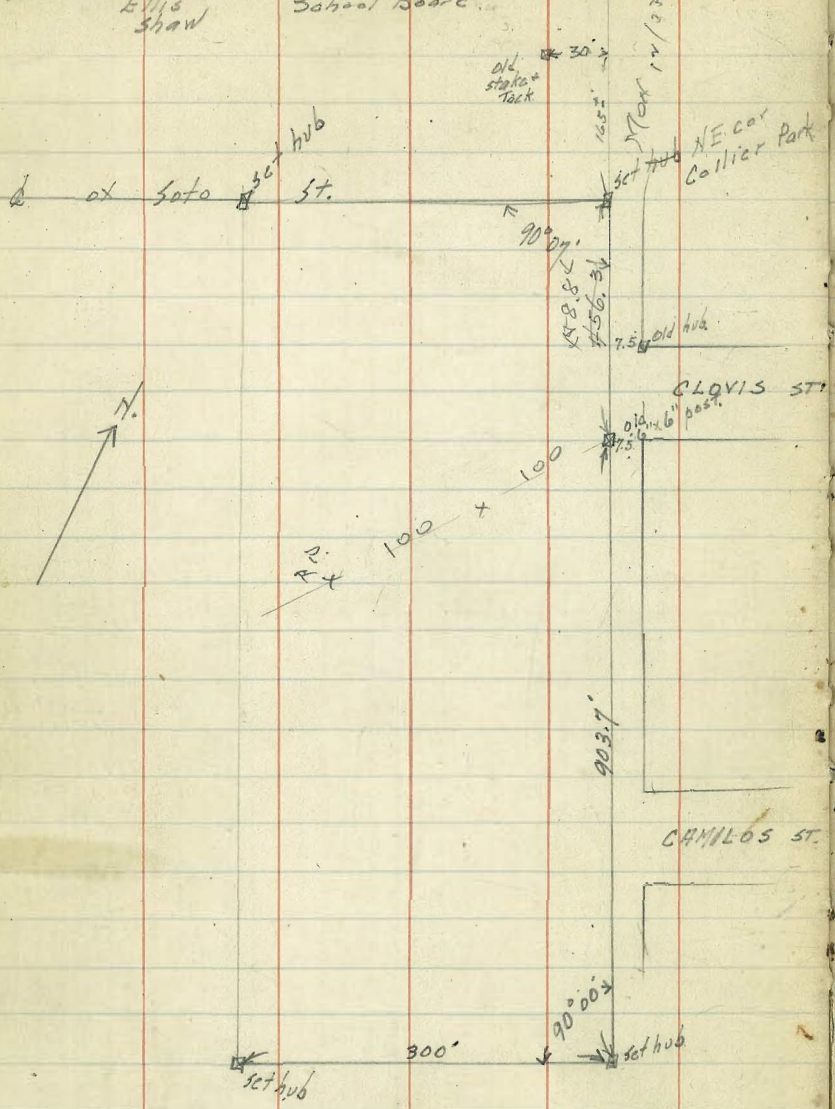 Ellis School Board
Shaw
30'
Old
stake &
Tack
165±
set hub
set hub
NE. cor
Collier Park
of Soto St.
90° 07'
456.3
7.5 old hub
CLOVIS ST.
old
6"x6" post.
7.5
100 + 100
903.7'
CAMILOS ST.
90° 00'
300'
set hub
set hub
N.